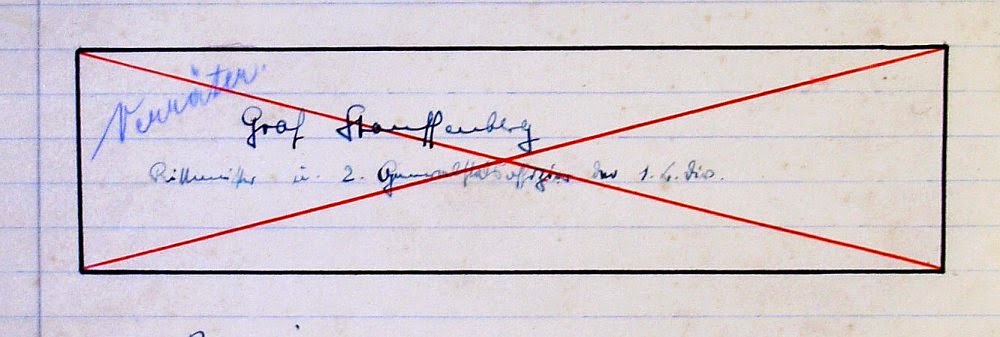 Verräter.
Graf Stauffenberg
Rittmeister u. 2. Generalstabsoffizier der 1. l. Div.